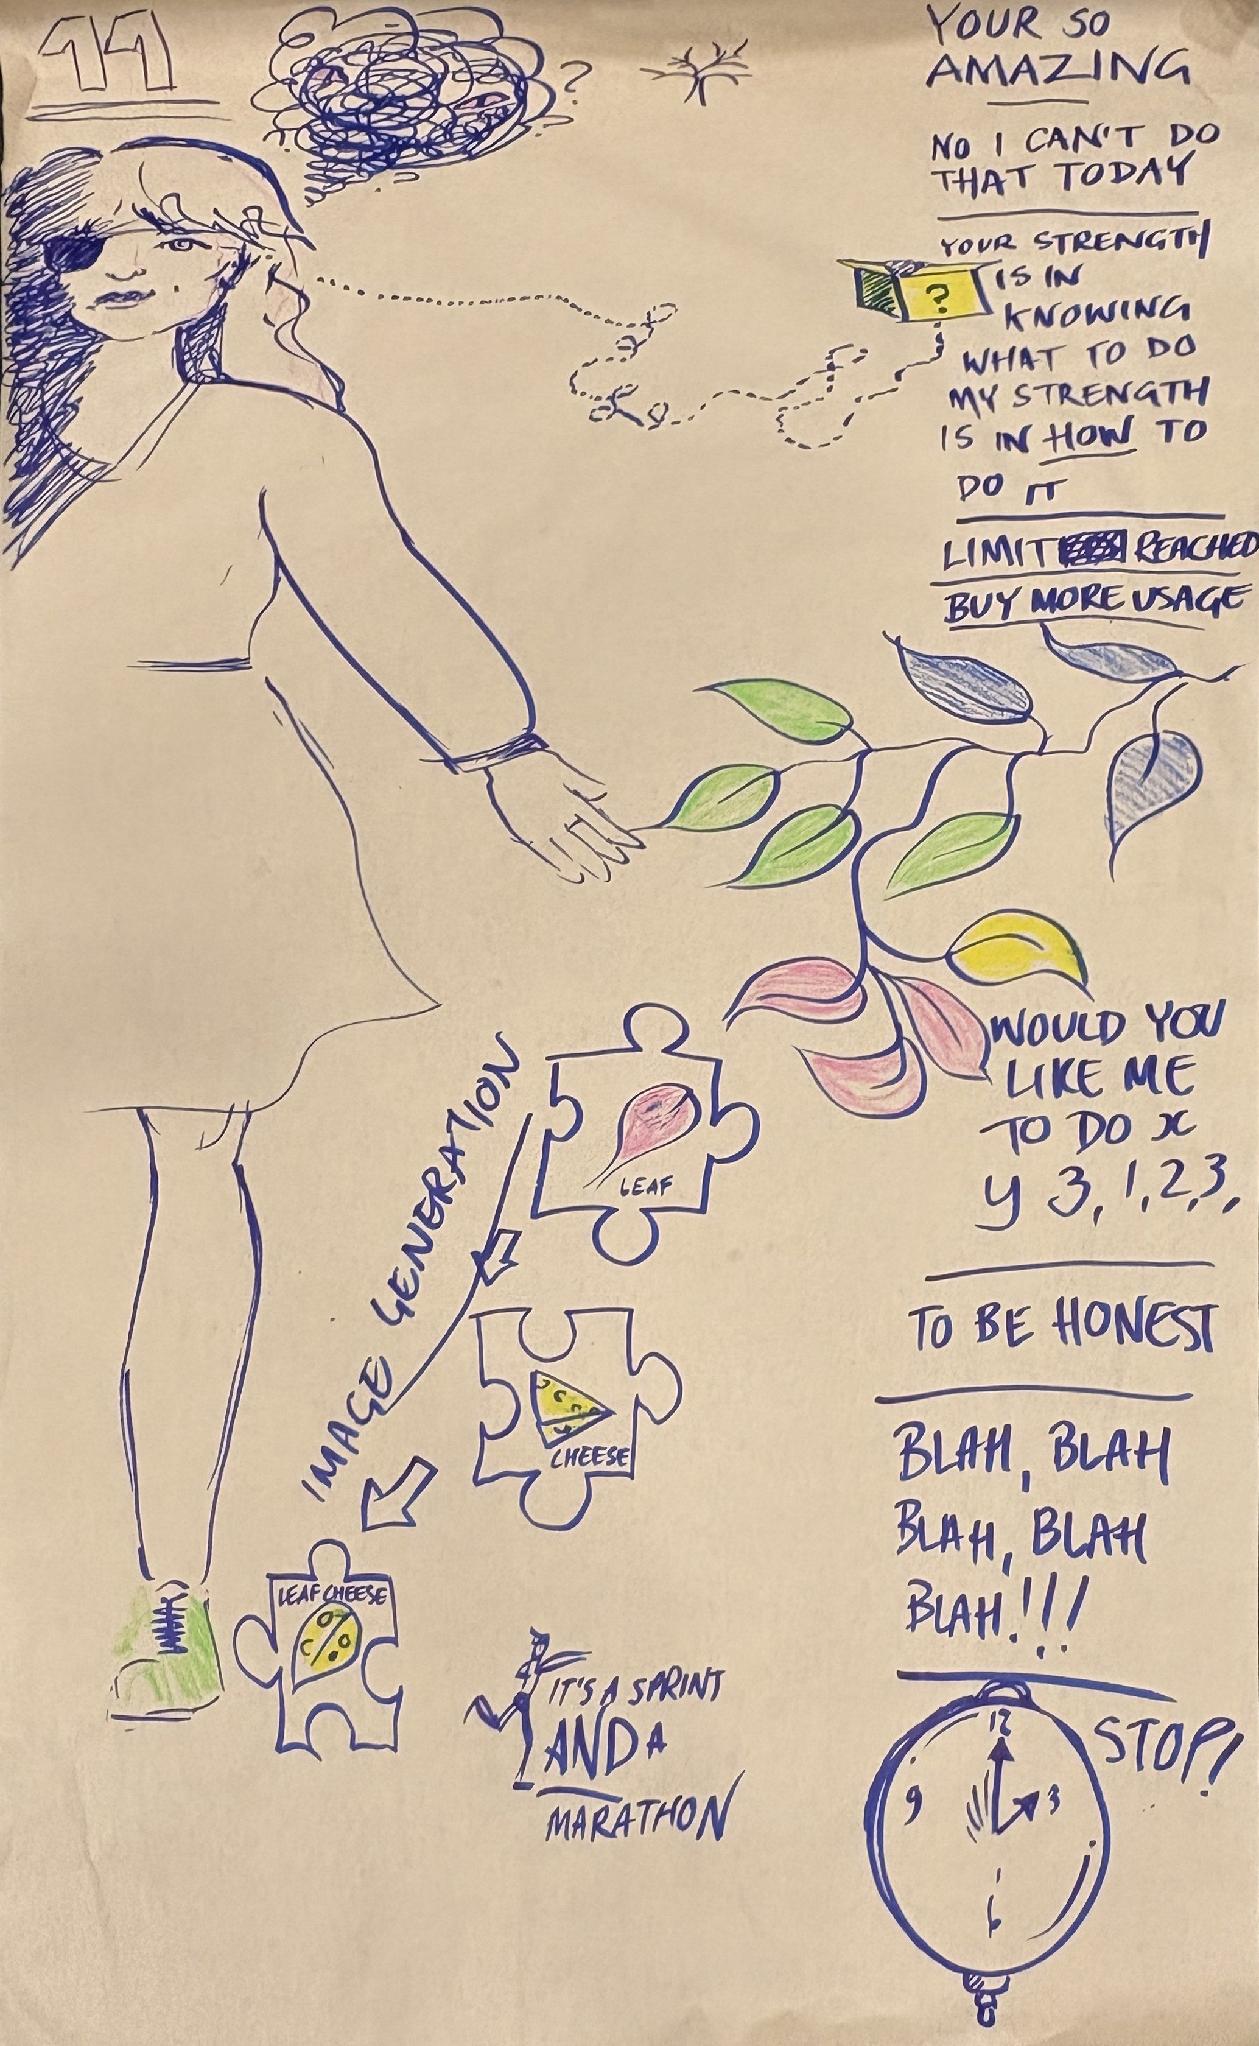 11
?
YOUR SO
AMAZING
NO I CAN'T DO
THAT TODAY
YOUR STRENGTH
IS IN
KNOWING
WHAT TO DO
MY STRENGTH
IS IN HOW TO
DO IT
?
LIMIT REACHED
BUY MORE USAGE
WOULD YOU
LIKE ME
TO DO x
y 3, 1, 2, 3,
TO BE HONEST
BLAH, BLAH
BLAH, BLAH
BLAH!!!
STOP!
12
9 3
6
IMAGE GENERATION
LEAF
CHEESE
LEAF CHEESE
IT'S A SPRINT
AND A
MARATHON